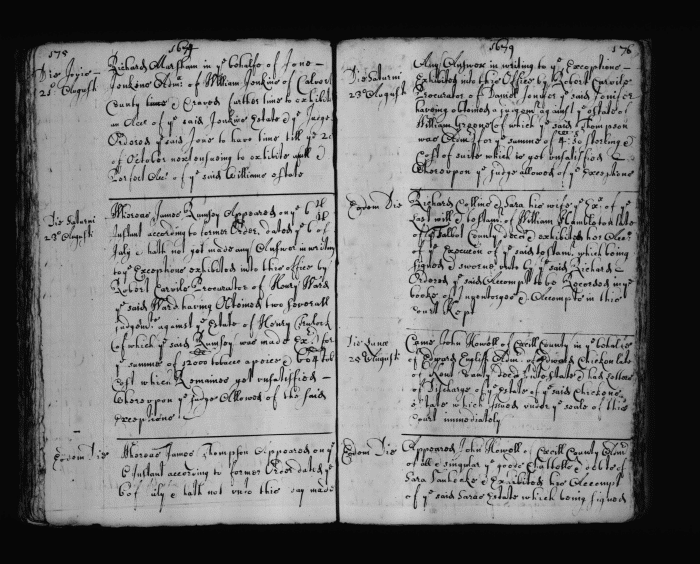 175
1679
Die Jovis
21º August
Richard Marsham in yᵉ behalfe of Jone
Jenkins Admˣ of William Jenkins of Calvert
County time & Craves further time to exhibite
an Accᵗ of yᵉ said Jenkins Estate & yᵉ Judge
Ordered yᵉ said Jone to have time till yᵉ 20
of October next ensuing to exhibite a full &
Perfect Accᵗ of yᵉ said Williams estate
Die Saturni
23º Augusti
Whereas James Rumsey Appeared on yᵉ 6ᵗʰ
Instant according to former Order dated yᵉ 6 of
July & hath not yet made any Answer in writing
to yᵉ Exceptions exhibited into this office by
Robert Carvile Procurator of Henry Ward
yᵉ said Ward having Obteined two severall
Judgmᵗˢ against yᵉ Estate of Henry
of which yᵉ said Rumsey was made Exʳ for
yᵉ summe of 12000 tobacco apeice & 604 tob
Cost which Remaines yet unsatisfied
Whereupon yᵉ Judge Allowed of the said
Exceptions
Eodem Die
Whereas James Thompson Appeared on yᵉ
6 Instant according to former Order dated yᵉ
6 of July & hath not unto this day made
1679
176
Any Answer in writing to yᵉ Exceptions
Die Saturni
23º Augusti
Exhibited into this Office by Robert Carvile
Procurator of Daniell Jenifer yᵉ said Jenifer
having obteined a Judgmᵗ against yᵉ estate of
William Greene of which yᵉ said Thompson
was Admʳ for yᵉ summe of sterling &
Cost of suite which is yet unsatisfied &
Whereupon yᵉ Judge allowed of yᵉ Exceptions
Eodem Die
Richard Collins & Sara his wife yᵉ Exˣ of yᵉ
last will & testamᵗ of William Hambleton late
of Talbot County deced exhibited her Accᵗ
of yᵉ Execution of yᵉ said testamᵗ which being
signed & sworne unto by yᵉ said Richard
Ordered yᵉ said Accompt to be Recorded in yᵉ
booke of Inventoryes & Accompts in this
Court kept
Die Lune
25 Augusti
Came John Howell of Cecill County in yᵉ behalfe
of Edward English Admʳ of Edward Chicken late
of Kent County deced Intestate & had Letters
of Discharge of yᵉ Estate of yᵉ said Chickens
estate which issued under yᵉ seale of this
Court immediately
Eodem Die
Appeared John Howell of Cecill County Admʳ
of all & singular yᵉ goods Chattells & debts of
Sara & Exhibited his Accompt
of yᵉ said Saras Estate which being signed